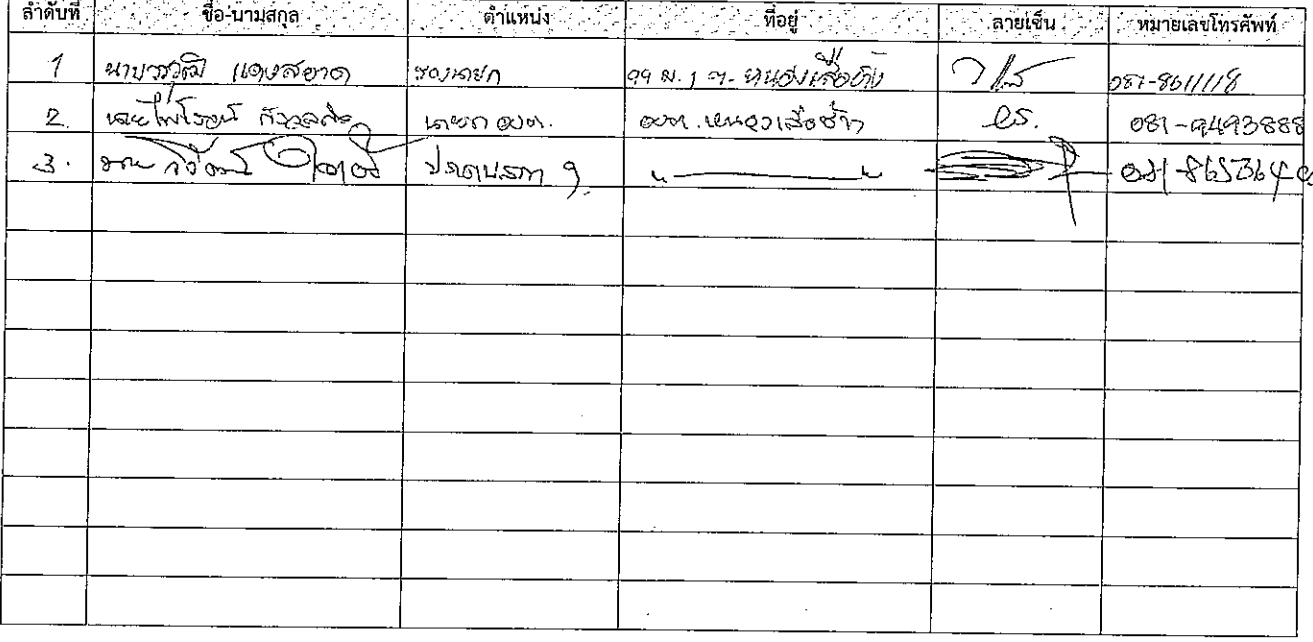 ลำดับที่ ชื่อ-นามสกุล ตำแหน่ง ที่อยู่ ลายเซ็น หมายเลขโทรศัพท์
1 นายวรวุฒิ แดงสอาด รองนายก 99 ม.1 ต. หนองเสือช้าง 081-8611118
2. นายไพโรจน์ นายก อบต. อบต. หนองเสือช้าง 081-9493888
3. นาย ประธานสภา ฯ " ——— "